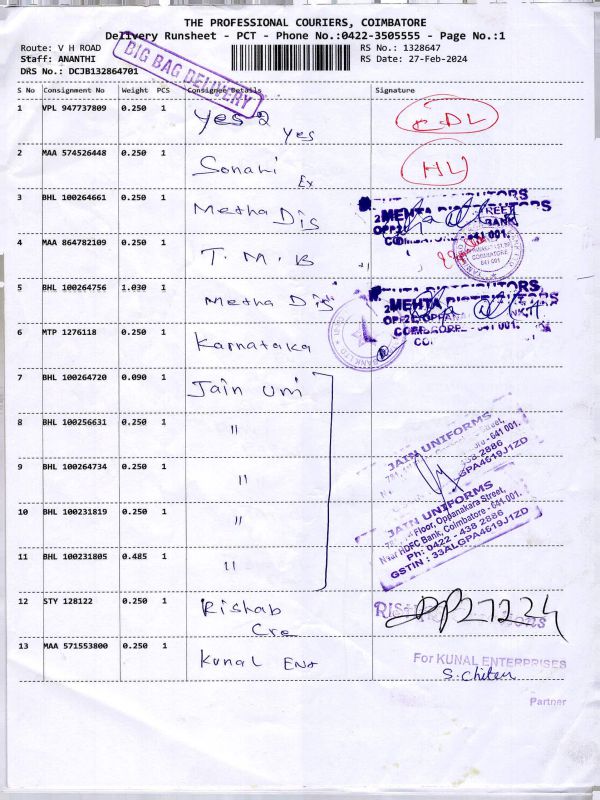 THE PROFESSIONAL COURIERS, COIMBATORE
Delivery Runsheet - PCT - Phone No.:0422-3505555 - Page No.:1
Route: V H ROAD
RS No.: 1328647
Staff: ANANTHI
RS Date: 27-Feb-2024
DRS No.: DCJB132864701
BIG BAG DELIVERY
S No Consignment No Weight PCS Consignee Details Signature
1 VPL 947737809 0.250 1 Yes 2 Yes
2 MAA 574526448 0.250 1 Sonaki Ex HU
3 BHL 100264661 0.250 1 Metha Dis
MEHTA DISTRIBUTORS
COIMBATORE - 641 001.
4 MAA 864782109 0.250 1 T. M. B
COIMBATORE
641 001
5 BHL 100264756 1.030 1 Metha Dis
MEHTA DISTRIBUTORS
6 MTP 1276118 0.250 1 Karnataka
7 BHL 100264720 0.090 1 Jain Uni
8 BHL 100256631 0.250 1 "
JAIN UNIFORMS
9 BHL 100264734 0.250 1 "
10 BHL 100231819 0.250 1 "
JAIN UNIFORMS
Floor, Oppanakara Street,
Near HDFC Bank, Coimbatore - 641 001.
Ph: 0422 - 438 2886
GSTIN : 33ALGPA4619J1ZD
11 BHL 100231805 0.485 1 "
12 STY 128122 0.250 1 Rishab Cre
13 MAA 571553800 0.250 1 Kunal Ent
For KUNAL ENTERPRISES
S. Chiten
Partner